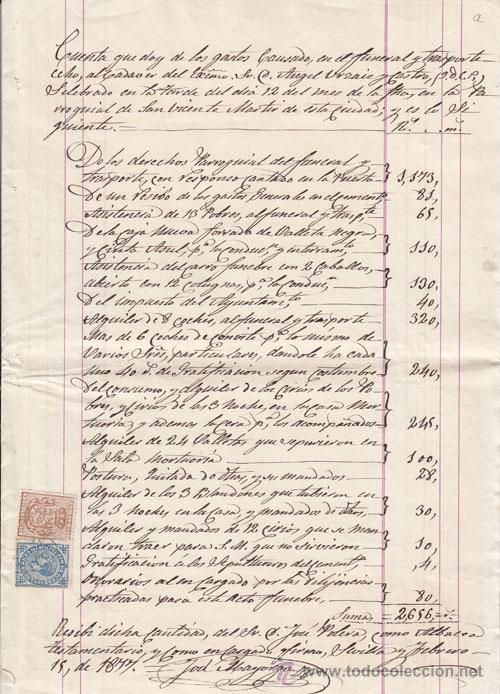 a
Cuenta que doy de los gastos Causado, en el funeral y trasporte
echo, al Cadaver del Excmo. Sr. D. Angel Urzaiz y Castro, (Q.D.E.P.)
Selebrado en la tarde del dia 12 del mes de la fha, en la Pa
rroquial de San Vicente Martir de esta Ciudad; y es lo Si
guiente.
Rs. . . ms.
De los derechos Parroquial del funeral y
trasporte, con responso cantado en la Puerta 1,173,
De un resibo de los gastos Generales en el sement.º 81,
Asistencia de 13 Pobres, al funeral y Trasp.te 65,
De la caja Nueva forrada de Valleta negra,
y Cinta Asul, p.ª la conduc.n y enterram.to 110,
Asistencia del carro funebre con 2 Caballos,
abierto con 12 p.ª la conduc.n 130,
Del impuesto del Ayuntam.to 40,
Alquiler de 8 coches, al funeral y trasporte 320,
Mas de 6 coches de p.ª lo mismo de
Varios Sres, particulares, dandole ha cada
uno 40 rs. de Gratificacion segun costumbre 240,
Del consumo, y Alquiler de los cirios de los Po-
bres, y cirios de las 3 Noche, en la casa Mor-
tuoria y ademas la cera p.ª los acompañados 245,
Alquiler de 24 que sirvieron en
la Sala Mortuoria 100,
Postura, Quitada de otras, y sus mandados 28,
Alquiler de los 3 Blandones que tubieron en
las 3 noches en la casa, y mandados de 30,
Alquiler y mandados de 12 cirios que se man
daron traer para S.M. que no sirvieron 10,
Gratificacion a los Sepultureros del sement.º 4,
Honorarios al encargado por las Dilijencias
practicadas para este Acto funebre, 80,
Suma, = 2,656, = rs.
Resibi dicha Cantidad, del Sr. D. José como Albacea
testamentario, y como encargado firmo, Sevilla y Febrero
15, de 1877.
José Mayorga
www.todocoleccion.net